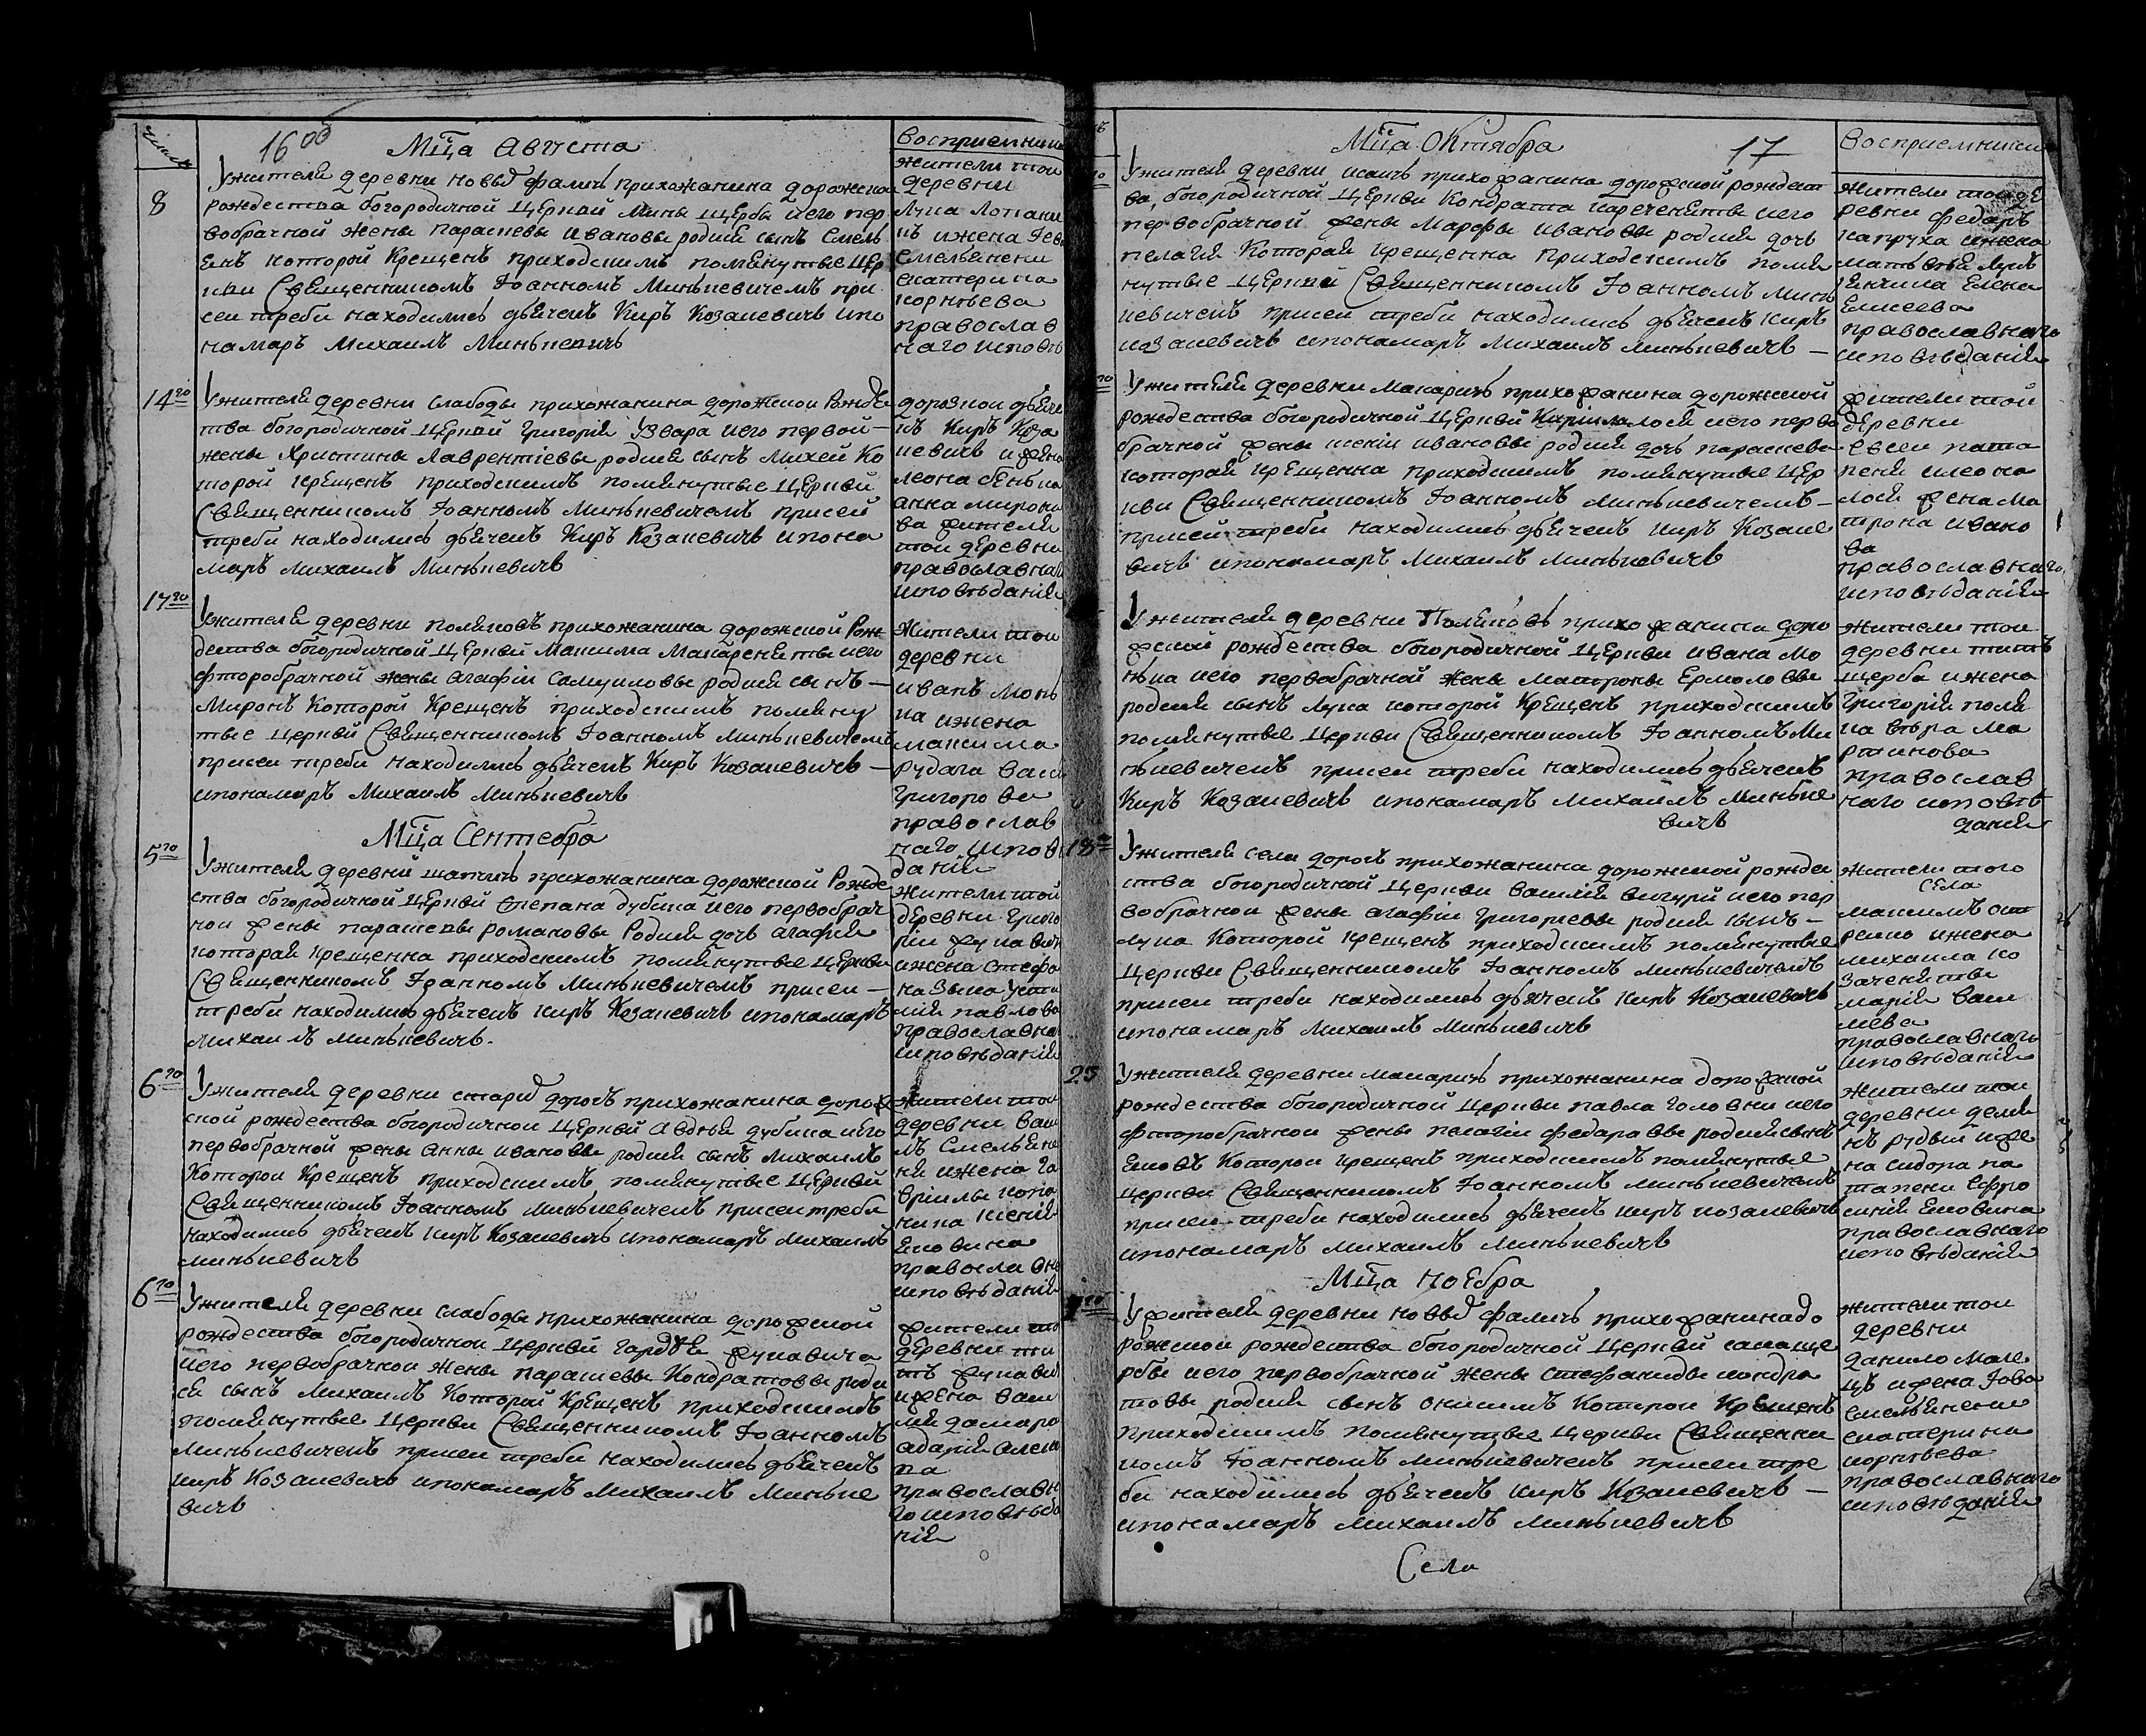 числа
16 об
Мца Августа
восприемники
8
У жителя деревни новыя фаличъ прихожанина дорожской
рождества богородичной церкви Мины щербы и его пер
вобрачной жены Парасkевы Ивановы родился сынъ Емель
янъ которой крещенъ приходскимъ помянутые цер
кви Священникомъ Иоанномъ Минкевичемъ при
сеи треби находились дьячекъ Киръ Козакевичъ и по
намаръ Михаилъ Минкевичъ
жители тои
деревни
Лука Лопани
къ и жена
Емельянени
екатерина
корнеева
православ
наго исповѣ
14го
У жителя деревни слабоды прихожанина дорожской Рожде
тва богородичной церкви Григория Узвара и его первой
жены Христины Лаврентиевы родился сынъ Михей ко
торой крещенъ приходскимъ помянутые церкви
Священникомъ Иоанномъ Минкевичемъ при сей
треби находились дьячекъ Киръ Козакевичъ и пона
маръ Михаилъ Минкевичъ
дорозкои дьяче
къ Киръ Коза
кевичъ и жена
анна мироно
ва жители
тои деревни
православна
исповѣдания
17го
У жителя деревни поликовъ прихожанина дорожской Рож
дества богородичной церкви Максима Макареняты и его
фторобрачной жены агафии Самуиловы родился сынъ
Миронъ которой крещенъ приходскимъ помяну
тые церкви Священникомъ Иоанномъ Минкевичемъ
при сеи треби находились дьячекъ Киръ Козакевичъ
и понамаръ Михаилъ Минкевичъ
Жители тои
деревни
иванъ монь
ка и жена
максима
рудага васи
Григоро ва
православ
наго испов
дания
Мца Сентебра
5го
У жителя деревни шапчичъ прихожанина дорожской Рожде
ства богородичной церкви степана дубика и его первобрач
ной жены параскевы романовы Родился дочь агафия
которая крещенна приходскимъ помянутые церкви
Священникомъ Иоанномъ Минкевичемъ при сеи
треби находились дьячекъ киръ Козакевичъ и понамаръ
михаилъ минкевичъ.
жители той
деревни григо
рий жукавич
и жена стефа
павлова
православна
исповѣдания
6го
У жителя деревни старыя дорогъ прихожанина дорож
ской рождества богородичной церкви авдѣя дубика и его
первобрачной жены анны ивановы родился сынъ михаилъ
которой крещенъ приходскимъ помянутые церкви
Священникомъ Иоанномъ Минкевичемъ при сеи треби
находились дьячекъ киръ Козакевичъ и понамаръ михаилъ
минкевичъ
жители тои
деревни васи
лъ Емельяне
ня и жена га
врилы копа
ника ксения
Ековина
православн
исповѣдания
6го
У жителя деревни слабоды прихожанина дорожской
рождества богородичной церкви гордѣя жукавича
и его первобрачной жены параскевы Кондратовы роди
ся сынъ михаилъ которой крещенъ приходскимъ
помянутые церкви Священникомъ Иоанномъ
Минкевичемъ при сеи треби находились дьячекъ
киръ Козакевичъ и понамаръ михаилъ минке
вичъ
жители то
деревни ти
тъ жукави
и жена васи
ля дамара
адария алек
па
православн
го исповѣда
ния
Мца Октября
17
Восприемники
У жителя деревни исаичъ прихожанина дорожской рождест
ва, богородичной церкви Кондрата гареченяты и его
первобрачной жены Марфы ивановы родился дочь
пелагия которая крещенна приходскимъ помя
нутые церкви Священникомъ Иоанномъ мин
кевичемъ при сеи треби находились дьячекъ киръ
козакевичъ и понамаръ Михаилъ минкевичъ
жители той де
ревни федоръ
капруха и жена
Елена
Елисеева
православнаго
исповѣдания
го
У жителя деревни макаричъ прихожанина дорожской
рождества богородичной церкви Кирилла лося и его перво
брачной жены ксении ивановы родился дочь параскева
которая крещенна приходскимъ помянутые цер
кви Священникомъ Иоанномъ минкевичемъ
при сеи треби находились дьячекъ киръ Козаке
вичъ и понамаръ Михаилъ Минкевичъ
жители той
деревни
Евсеи пата
пеня и леона
лося жена ма
трона ивано
ва
православнаго
исповѣдания
У жителя деревни Поликовъ прихожанина доро
жской рождества богородичной церкви ивана мо
нька и его первобрачной жены матроны Ермоловы
родился сынъ лука которой крещенъ приходскимъ
помянутые церкви Священникомъ Иоанномъ Ми
нкевичемъ при сеи треби находились дьячекъ
Киръ Козакевичъ и понамаръ Михаилъ Минке
вичъ
жители тои
деревни титъ
щерба и жена
григория поля
ка вѣра ма
ртинова
православ
наго исповѣ
дания
18го
У жителя села дорогъ прихожанина дорожской рожде
ства богородичной церкви Василия вигури и его пер
вобрачной жены агафии григориевы родился сынъ
лука которой крещенъ приходскимъ помянутые
церкви Священникомъ Иоанномъ Минкевичемъ
при сеи треби находились дьячекъ киръ Козакевичъ
и понамаръ Михаилъ Минкевичъ
жители того
села
максимъ ост
рейко и жена
михаила ко
заченяты
мария васи
лева
православнаго
исповѣдания
25
У жителя деревни макаричъ прихожанина дорожской
рождества богородичной церкви павла головни и его
фторобрачной жены пелагии федаравы родился сынъ
Ековъ которой крещенъ приходскимъ помянутые
церкви Священникомъ Иоанномъ минкевичемъ
при сеи треби находились дьячекъ киръ козакевичъ
и понамаръ Михаилъ Минкевичъ
жители тои
деревни демя
нъ рудый и же
на сидора па
тапени Ефро
синия Ековина
православнаго
исповѣдания
Мца ноебра
У жителя деревни новыя фаличъ прихожанина до
рожской рождества богородичной церкви савы ще
рбы и его первобрачной жены стефаниды кондра
товы родился сынъ онисимъ которой крещенъ
приходскимъ помянутые церкви Священни
комъ Иоанномъ минкевичемъ при сеи тре
би находились дьячекъ киръ Козакевичъ
и понамаръ Михаилъ минкевичъ
жители тои
деревни
данило мале
цъ и жена Иова
Емельянени
екатерина
корнѣева
православнаго
исповѣдания
Села